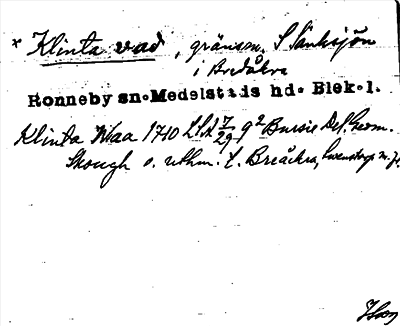 * Klinta vad, gränsm. S Sänksjön
i Bredåkra
Ronneby sn. Medelstads hd. Blek. l.
Klinta Waa 1710 LSA 7/29 9² Bursie Del. Geom.
Skough o. uthm. t. Breåkra, Svenstorp m. fl.